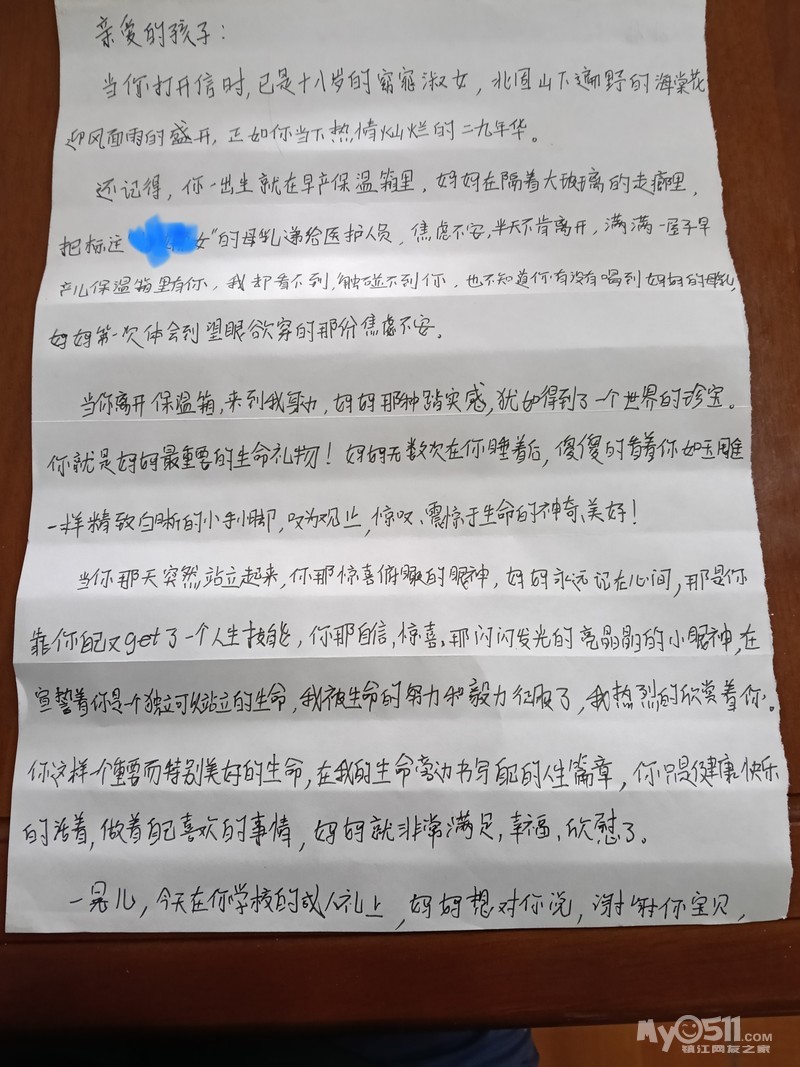 亲爱的孩子：
当你打开信时，已是十八岁的窈窕淑女，北固山下遍野的海棠花
迎风面雨的盛开，正如你当下热情灿烂的二九年华。
还记得，你一出生就在早产保温箱里，妈妈在隔着大玻璃的走廊里，
把标注 女"的母乳递给医护人员，焦虑不安，半天不肯离开，满满一屋子早
产儿保温箱里有你，我却看不到，触碰不到你，也不知道你有没有喝到妈妈的母乳，
妈妈第一次体会到望眼欲穿的那份焦虑不安。
当你离开保温箱，来到我身边，妈妈那种踏实感，犹如得到了一个世界的珍宝。
你就是妈妈最重要的生命礼物！妈妈无数次在你睡着后，傻傻的看着你如玉雕
一样精致白晰的小手小脚，叹为观止，惊叹、震惊于生命的神奇、美好！
当你那天突然站立起来，你那惊喜俯瞰的眼神，妈妈永远记在心间，那是你
靠你自己又get了一个人生技能，你那自信，惊喜，那闪闪发光的亮晶晶的小眼神，在
宣誓着你是个独立可以站立的生命，我被生命的努力和毅力征服了，我热烈的欣赏着你。
你这样一个重要而特别美好的生命，在我的生命旁边书写 的人生篇章，你只是健康快乐
的活着，做着自己喜欢的事情，妈妈就非常满足，幸福、欣慰了。
一晃儿，今天在你学校的成人礼上，妈妈想对你说，谢谢你宝贝，
My0511.COM
镇江网友之家